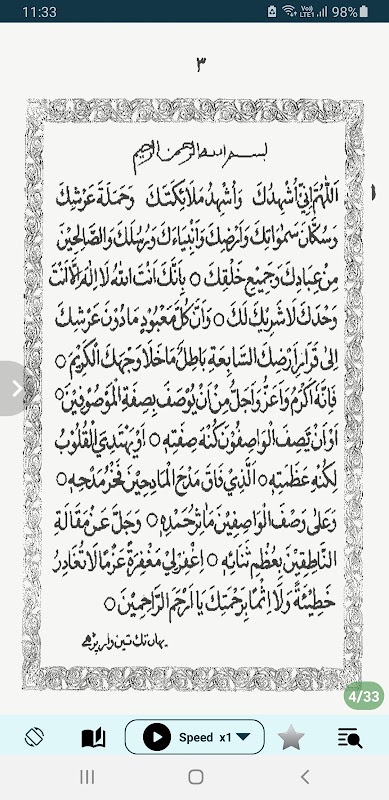 11:33
Vo)) LTE1 98%
٣
بسم الله الرحمن الرحيم
اَللّٰهُمَّ اِنِّيْ اُشْهِدُكَ وَاُشْهِدُ مَلَائِكَتَكَ وَحَمَلَةَ عَرْشِكَ
وَسُكَّانَ سَمٰوَاتِكَ وَاَرْضِكَ وَاَنْبِيَاءَكَ وَرُسُلَكَ وَالصَّالِحِيْنَ
مِنْ عِبَادِكَ وَجَمِيْعِ خَلْقِكَ ○ بِاَنَّكَ اَنْتَ اللهُ لَا اِلٰهَ اِلَّا اَنْتَ
وَحْدَكَ لَا شَرِيْكَ لَكَ ○ وَاَنَّ كُلَّ مَعْبُوْدٍ مَادُوْنَ عَرْشِكَ
اِلٰى قَرَارِ اَرْضِكَ السَّابِعَةِ بَاطِلٌ مَا خَلَا وَجْهَكَ الْكَرِيْمَ ○
فَاِنَّهٗ اَكْرَمُ وَاَعَزُّ وَاَجَلُّ مِنْ اَنْ يُوْصَفَ بِصِفَةِ الْمَوْصُوْفِيْنَ ○
اَوْ اَنْ تَصِفَ الْوَاصِفُوْنَ كُنْهَ صِفَتِهٖ ○ اَوْ يَهْتَدِيَ الْقُلُوْبُ
لِكُنْهِ عَظَمَتِهٖ ○ اَلَّذِيْ فَاقَ مَدْحَ الْمَادِحِيْنَ فَخْرُ مَدْحِهٖ ○
وَعَلٰى وَصْفَ الْوَاصِفِيْنَ مَاٰثِرُ حَمْدِهٖ ○ وَجَلَّ عَنْ مَقَالَةِ
النَّاطِقِيْنَ بِعُظْمِ ثَنَائِهٖ ○ اِغْفِرْلِيْ مَغْفِرَةً عَزْمًا لَا تُغَادِرُ
خَطِيْئَةً وَلَا اِثْمًا بِرَحْمَتِكَ يَا اَرْحَمَ الرَّاحِمِيْنَ ○
یہاں تک تین وار پڑھے
4/33
Speed x1